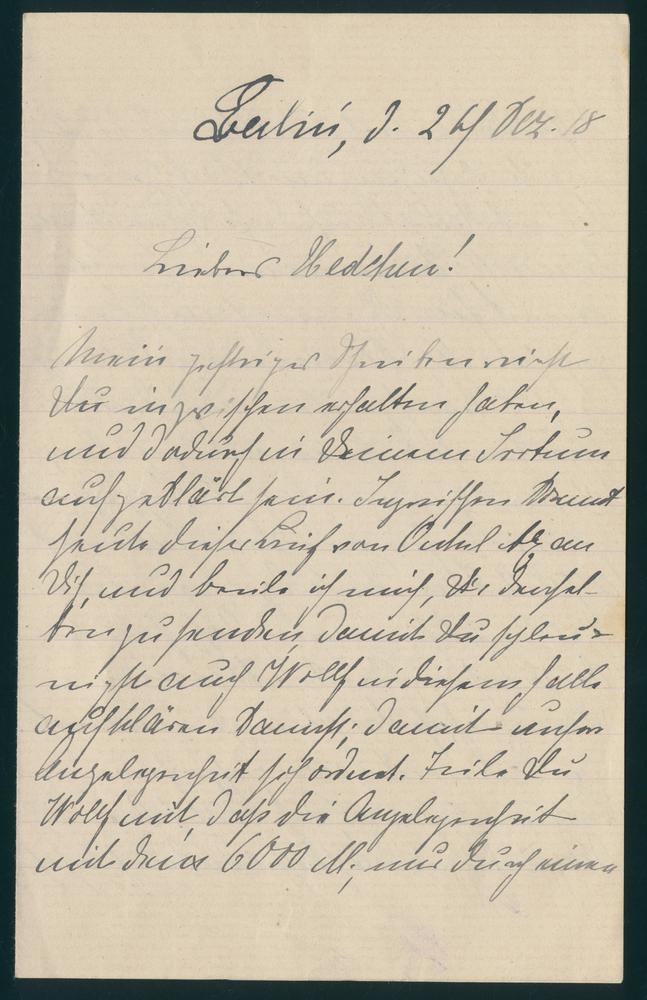 Berlin, d. 24 Dez. 18
Liebes Hedchen!
Mein gestriges Schreiben wirst
Du inzwischen erhalten haben,
und dadurch in Deinem Irrtum
aufgeklärt sein. Inzwischen kommt
heute dieser Brief von Onkel an
Dich, und beeile ich mich, Dir densel-
ben zu senden, damit Du schleu-
nigst auch Wolff in diesem Falle
aufklären kannst; damit unsere
Angelegenheit sich ordnet. Teile Du
Wolff mit, daß die Angelegenheit
mit den 6000 M, nur durch einen